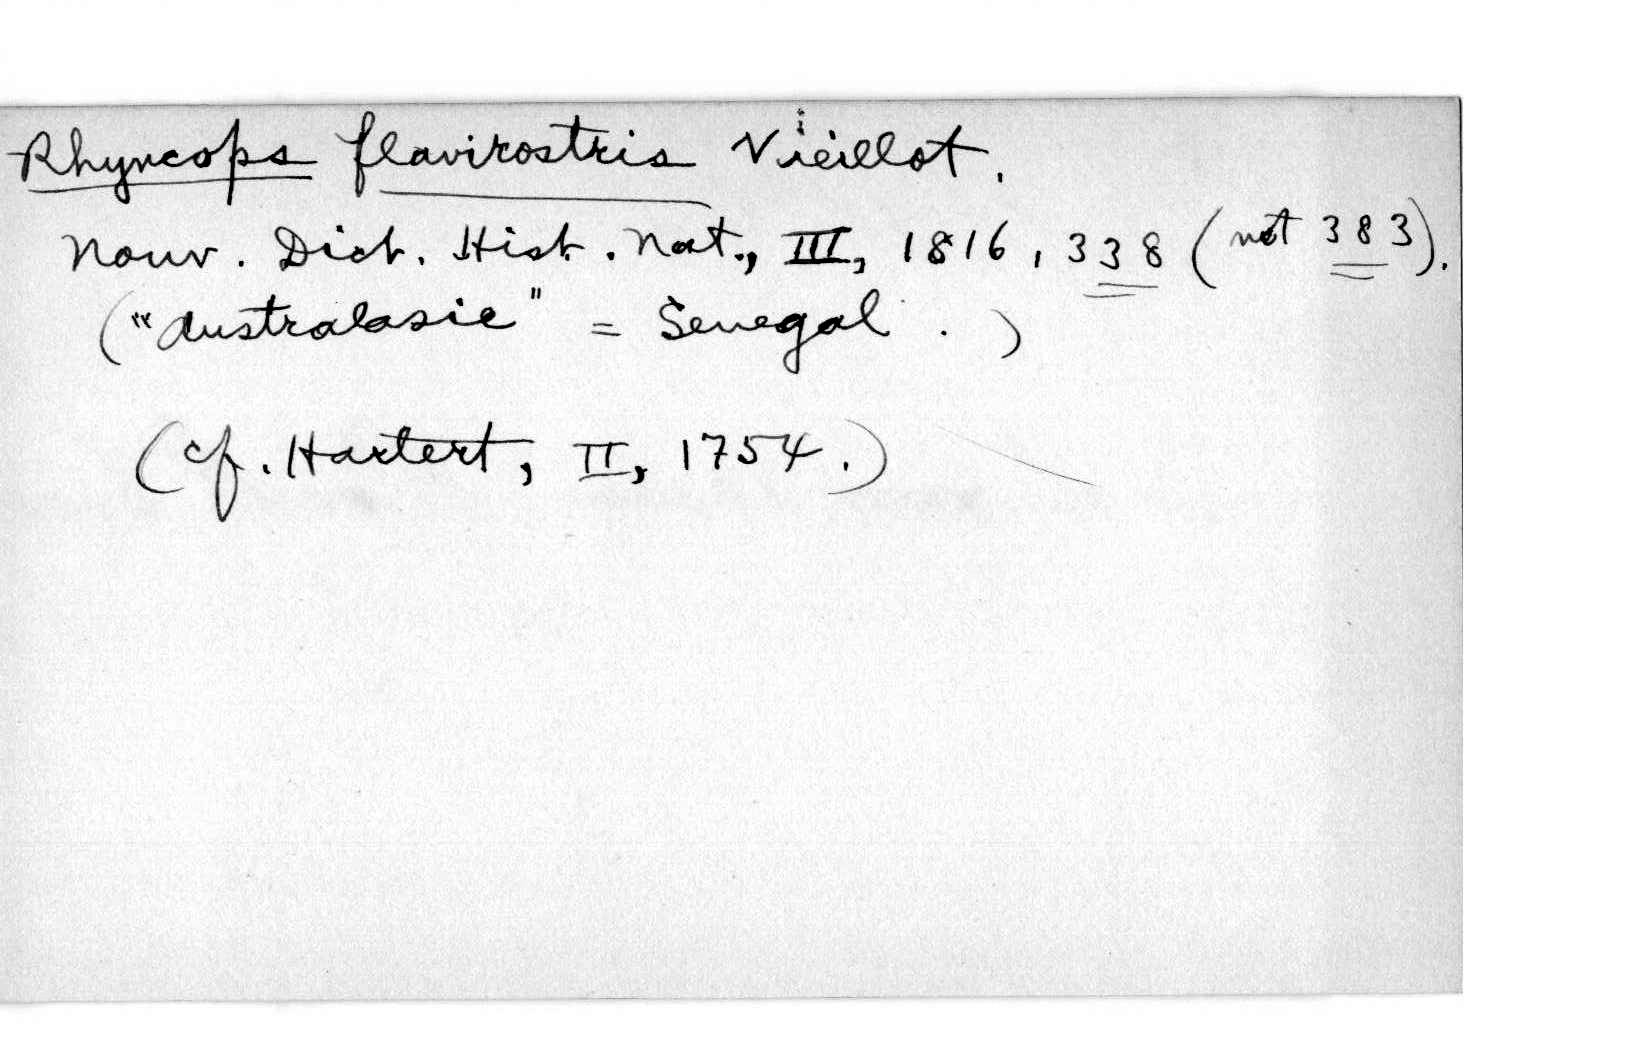 Rhyncops flavirostris Vieillot.
Nouv. Dict. Hist. Nat., III, 1816, 338 (not 383).
("Australasie" = Senegal.)
(cf. Hartert, II, 1754.)